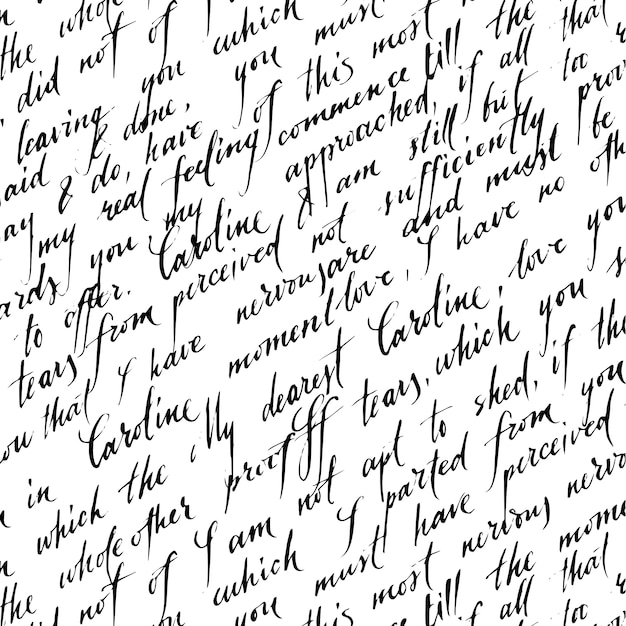 the whole of which must the that
did not of you most till all too
leaving you of this commence if prov
said & done, have feeling approached, but
ay & do, real my & am still sufficiently be
my you Caroline not and must no oth
ards offer. perceived nervous are I have
to from moment love, love you
tears I have Caroline, you s
ou that Caroline My dearest which if the
in which the proof off tears, shed, you
the whole other not apt to from perceived
did not of I am I parted nervous
the which must have most the mome
you this till all that